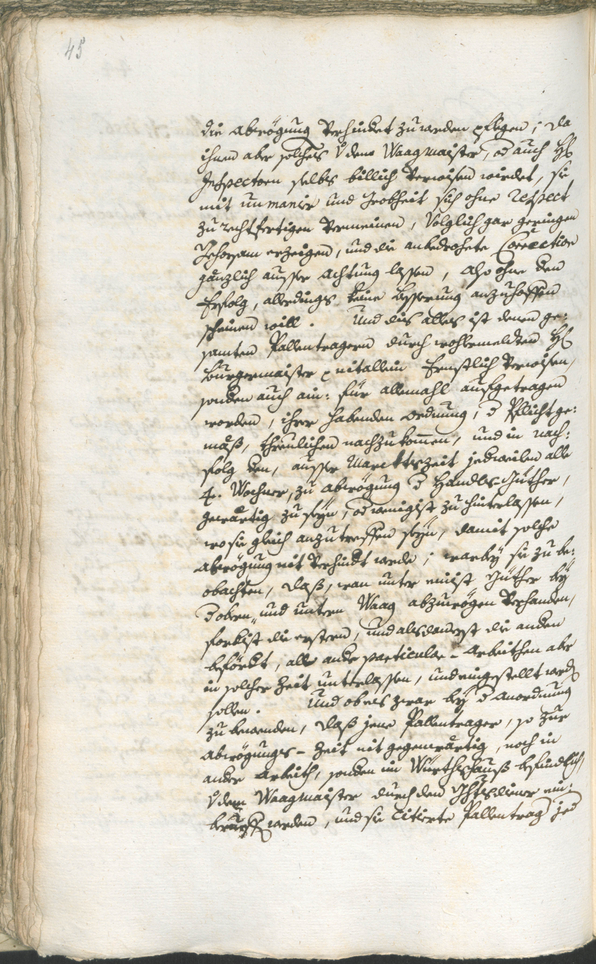 45
die abwögung verhindert zu werden pflegen; da
ihnen aber solches v dem Waagmaister, od auch H
Inspectorn selbs billich verwisen wirdet, sie
mit unmanier und Grobheit sich ohne respect
zu rechtfertigen vermeinen, volglich gar geringen
Gehorsam erzeigen, und die anbedrohete Correction
gänzlich ausser achtung lassen, also ohne den
Erfolg, allerdings keine besserung anzuhoffen
scheinen will. Und dis alles ist denen ge-
samten Pallentragern durch wohlermeldten H
Burgermaister nit allein Ernstlich verwisen,
sonden auch ain: für allemahl aufgetragen
worden, ihrer habenden ordnung, d Pflicht ge-
mäß, threulichen nachzukommen, und in nach-
folg den, ausser Marcktszeit jedweilen alle
4. Wochner, zu abwögung d Handls Güther,
gewärtig zu seyn, od wenigist zu hinterlassen,
wo sie gleich anzutreffen seyn, damit solche
abwögung nit verhindert werde; warbey sie zu be-
obachten, daß, wan unter einist Güther bey
d obern und untern Waag abzuwögen verhanden,
forderist die erstern, und alsdan erst die andern
befördert, alle andere particular-Arbeithen aber
in solcher Zeit unterlassen, und eingestellt werden
sollen. Und ob es zwar bey d anordnung
zu bewenden, daß jene Pallentrager, so zur
abwögungs-Zeit nit gegenwärtig, noch in
ander arbeith, sonden im Würthshauß befindlich,
v dem Waagmaister durch den Gerichtsdiener ein-
berueffen werden, und sie citierte Pallentrager jed